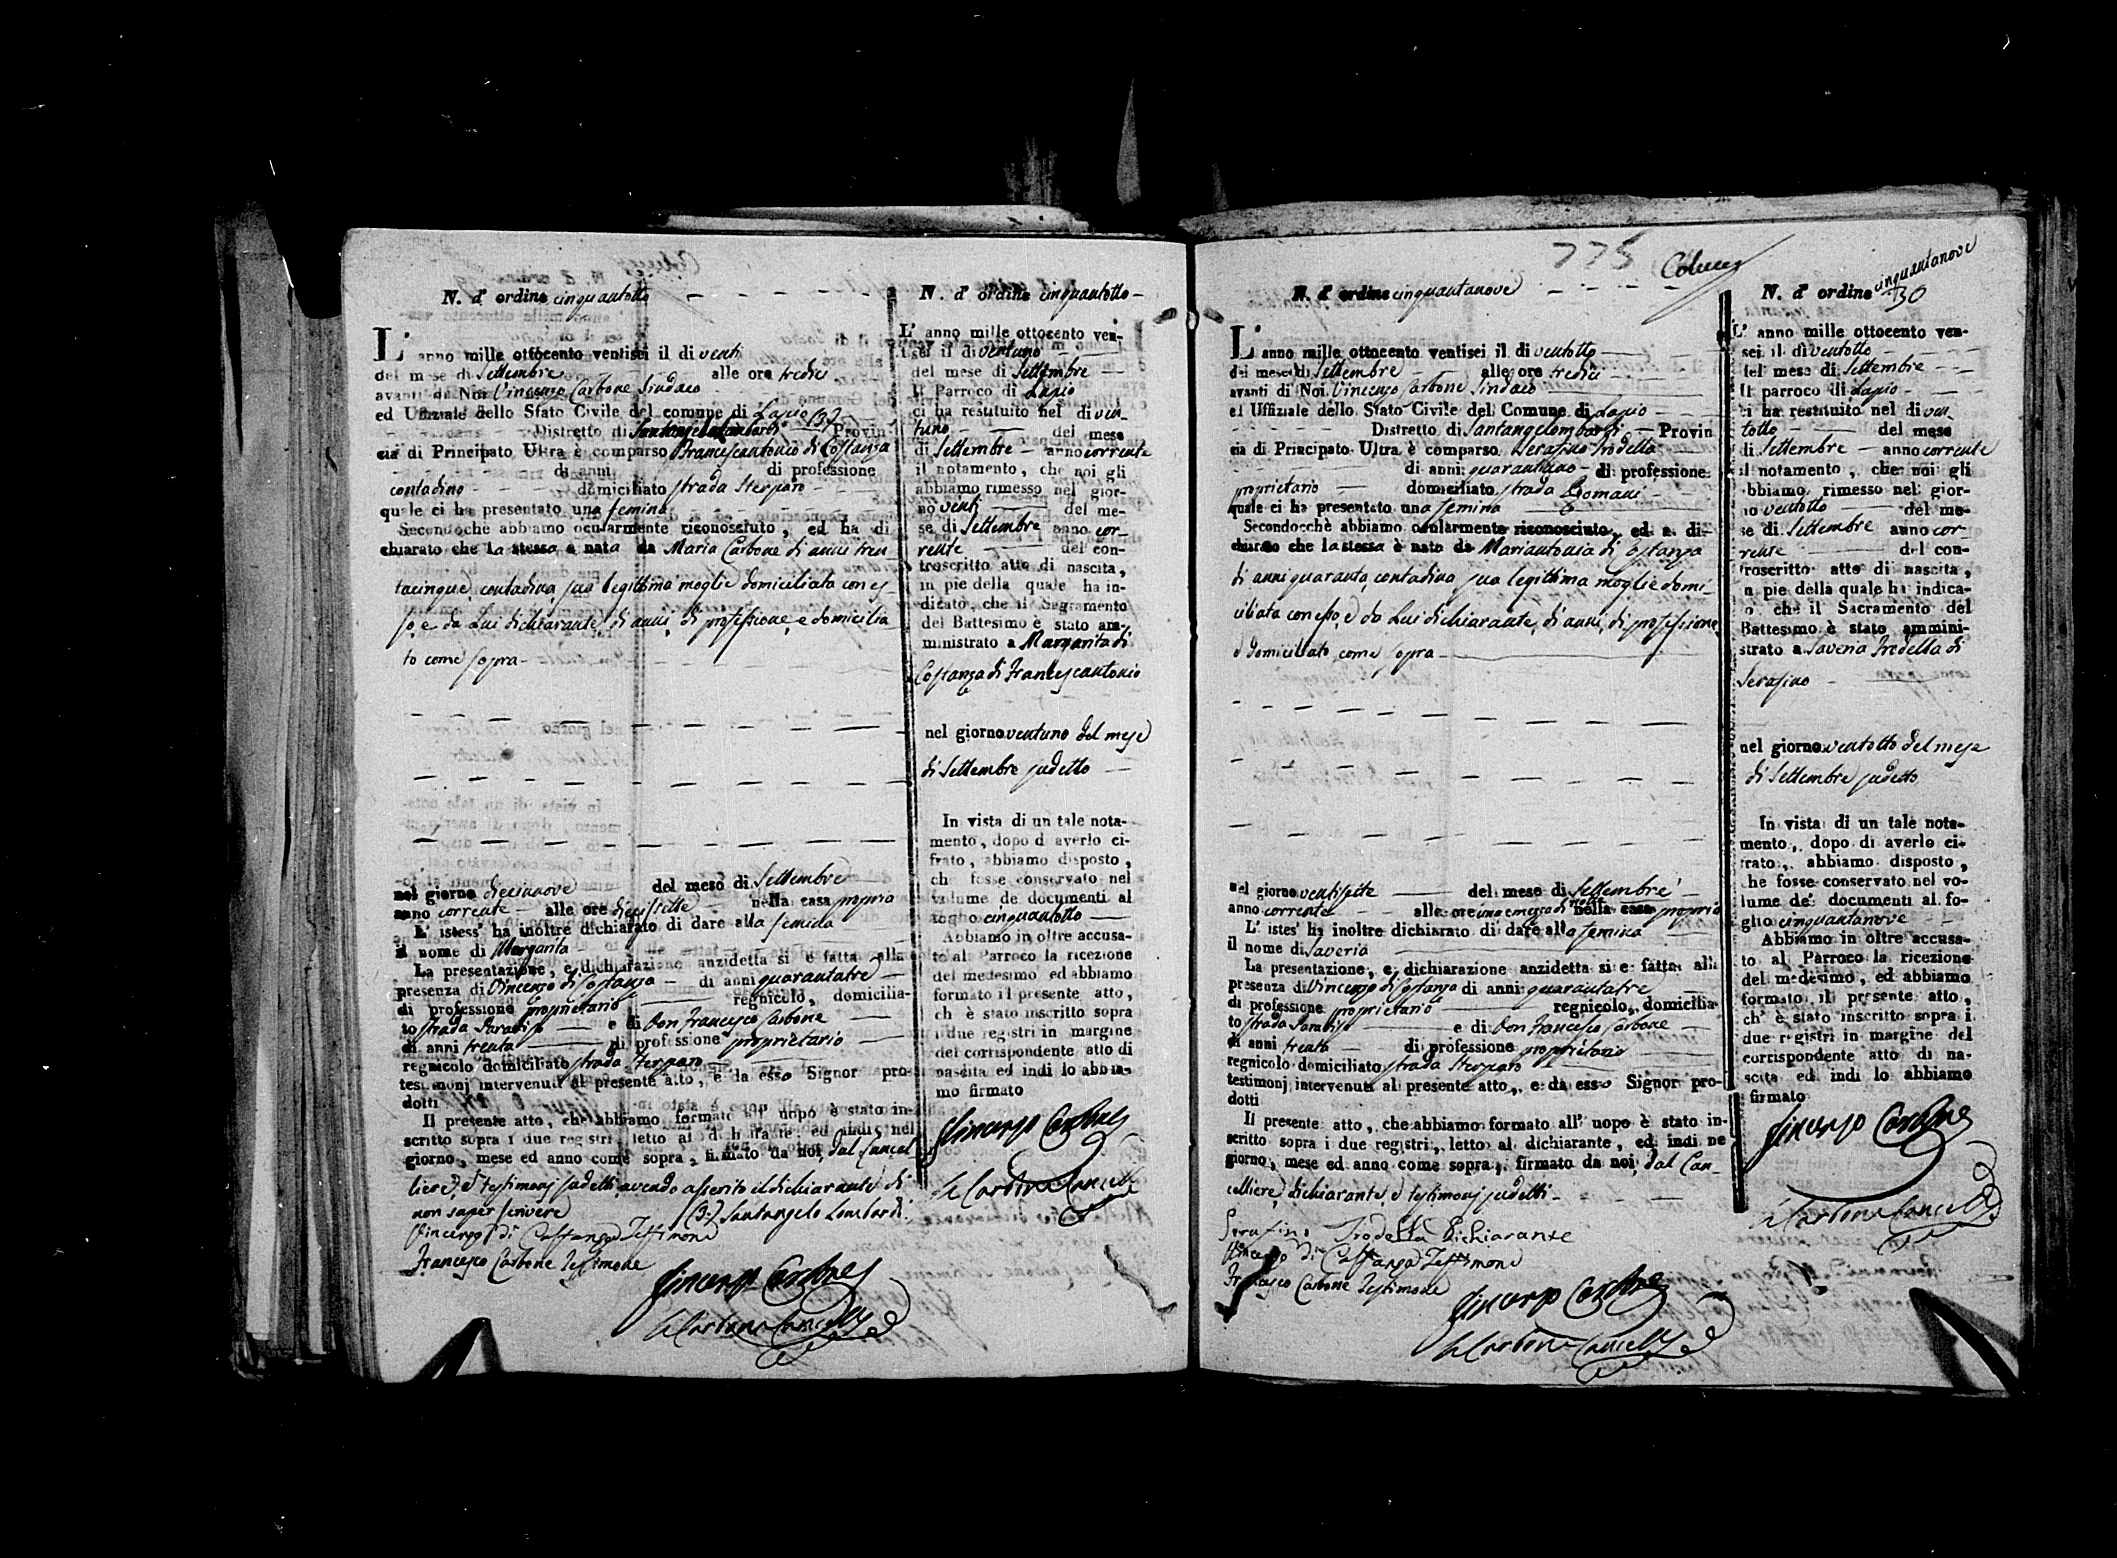 N. d' ordine cinquantotto
L' anno mille ottocento ventisei il di venti
del mese di Settembre alle ore tredici
avanti di Noi Vincenzo Carbone Sindaco
ed Uffiziale dello Stato Civile del comune di Lapio
Distretto di Santangelo Lombardi Provin
cia di Principato Ultra è comparso Francescantonio di Costanza
di anni di professione
contadino domiciliato strada Sterparo
quale ci ha presentato una femina
Secondochè abbiamo ocularmente riconosciuto, ed ha di
chiarato che la stessa è nata da Maria Carbone di anni tren
tacinque, contadina, sua legittima moglie domiciliata con es-
so, e da Lui dichiarante, di anni, di professione, e domicilia
to come sopra
nel giorno diecinove del mese di Settembre
anno corrente alle ore diecisette nella casa propria
L' istess' ha inoltre dichiarato di dare alla femina
il nome di Margarita
La presentazione, e dichiarazione anzidetta si è fatta alla
presenza di Vincenzo di Costanza di anni quarantatre
di professione proprietario regnicolo, domicilia-
to strada Paradiso e di Don Francesco Carbone
di anni trenta di professione proprietario
regnicolo domiciliato strada Sterparo
testimonj intervenuti al presente atto, e da esso Signor pro-
dotti
Il presente atto, che abbiamo formato all' uopo è stato in-
scritto sopra i due registri, letto al dichiarante, ed indi nel
giorno, mese ed anno come sopra, firmato da noi, dal Cancel
liere, e testimonj sudetti avendo asserito il dichiarante di
non saper scrivere (3.) Santangelo Lombardi.
Vincenzo di Costanza Testimone
Francesco Carbone Testimone
Vincenzo Carbone
Carbone Cancell.
N. d' ordine cinquantotto
L' anno mille ottocento ven-
tisei il di ventuno
del mese di Settembre
Il Parroco di Lapio
ci ha restituito nel di ven-
tuno del mese
di Settembre anno corrente
il notamento, che noi gli
abbiamo rimesso nel gior-
no venti del me-
se di Settembre anno cor-
rente del con-
troscritto atto di nascita,
in pie della quale ha in-
dicato, che il Sagramento
del Battesimo è stato am-
ministrato a Margarita di
Costanza di Francescantonio
nel giorno ventuno del mese
di Settembre sudetto
In vista di un tale nota-
mento, dopo d averlo ci-
frato, abbiamo disposto,
ch fosse conservato nel
volume de documenti al
foglio cinquantotto
Abbiamo in oltre accusa-
to al Parroco la ricezione
del medesimo ed abbiamo
formato il presente atto,
ch' è stato inscritto sopra
i due registri in margine
del corrispondente atto di
nascita ed indi lo abbia-
mo firmato
Vincenzo Carbone
Carbone Cancell.
775
N. d' ordine cinquantanove
L' anno mille ottocento ventisei il di ventotto
del mese di Settembre alle ore tredici
avanti di Noi Vincenzo Carbone Sindaco
ed Uffiziale dello Stato Civile del Comune di Lapio
Distretto di Santangelo Lombardi Provin
cia di Principato Ultra è comparso Serafino Trodella
di anni quarantuno di professione
proprietario domiciliato strada
quale ci ha presentato una femina
Secondocchè abbiamo ocularmente riconosciuto, ed a di-
chiarato che la stessa è nata da Mariantonia di Costanza
di anni quaranta, contadina, sua legittima moglie domi-
ciliata con esso, e da Lui dichiarante, di anni, di professione
e domiciliato come sopra
nel giorno ventisette del mese di Settembre
anno corrente alle ore una e mezza di notte nella casa propria
L' istes' ha inoltre dichiarato di dare alla femina
il nome di Saveria
La presentazione, e dichiarazione anzidetta si e fatta alla
presenza di Vincenzo di Costanza di anni quarantatre
di professione proprietario regnicolo, domicilia-
to strada Paradiso e di Don Francesco Carbone
di anni trenta di professione proprietario
regnicolo domiciliato strada Sterparo
testimonj intervenuti al presente atto, e da esso Signor pro-
dotti
Il presente atto, che abbiamo formato all' uopo è stato in-
scritto sopra i due registri, letto al dichiarante, ed indi ne
giorno, mese ed anno come sopra, firmato da noi, dal Can-
celliere, dichiarante, e testimonj sudetti
Serafino Trodella Dichiarante
Vincenzo di Costanza Testimone
Francesco Carbone Testimone
Vincenzo Carbone
Carbone Cancell.
N. d' ordine cinquantanove
130
L' anno mille ottocento ven-
sei il di ventotto
del mese di Settembre
Il parroco di Lapio
ci ha restituito nel di ven-
totto del mese
di Settembre anno corrente
il notamento, che noi gli
abbiamo rimesso nel gior-
no ventotto del me-
se di Settembre anno cor-
rente del con-
troscritto atto di nascita,
in pie della quale ha indica-
to che il Sacramento del
Battesimo è stato ammini-
strato a Saveria Trodella di
Serafino
nel giorno ventotto del mese
di Settembre sudetto
In vista di un tale nota-
mento, dopo di averlo ci-
frato, abbiamo disposto,
che fosse conservato nel vo-
lume de' documenti al fo-
glio cinquantanove
Abbiamo in oltre accusa-
to al Parroco la ricezione
del medesimo, ed abbiamo
formato il presente atto,
ch' è stato inscritto sopra i
due registri in margine del
corrispondente atto di na-
scita ed indi lo abbiamo
firmato
Vincenzo Carbone
Carbone Cancell.